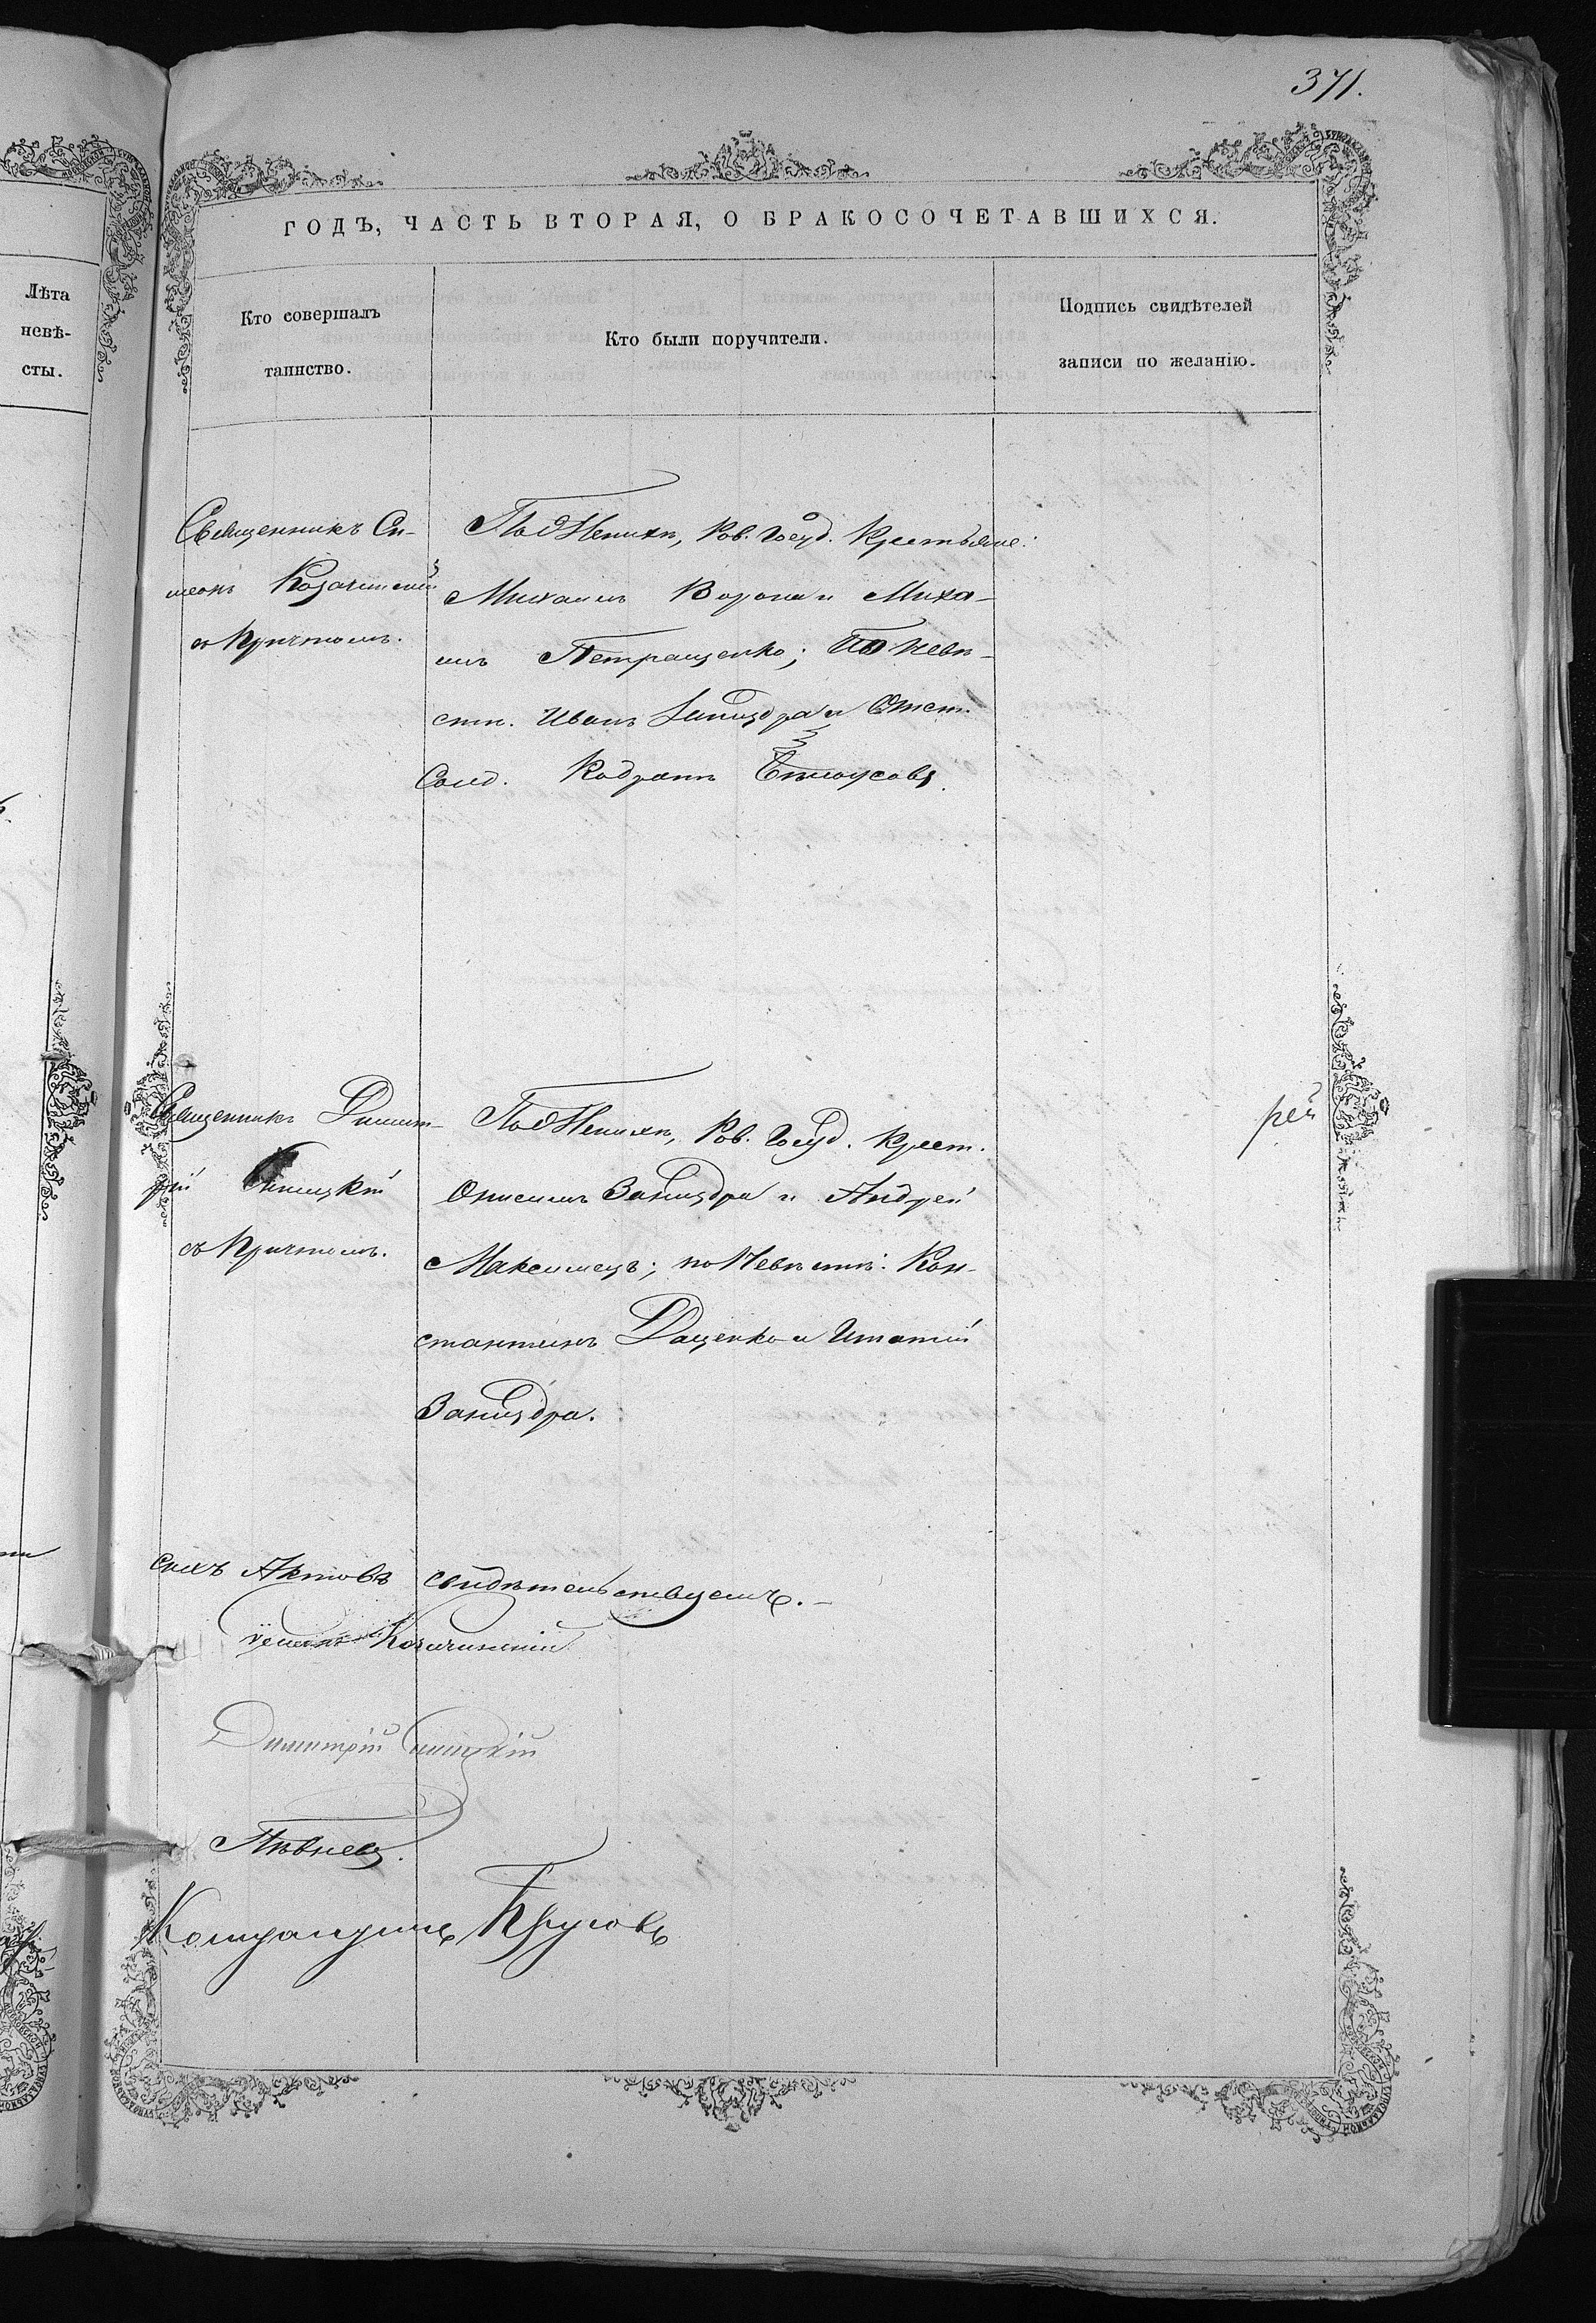 371.
ГОДЪ, ЧАСТЬ ВТОРАЯ, О БРАКОСОЧЕТАВШИХСЯ.
Лѣта
невѣ-
сты.
Кто совершалъ
таинство.
Кто были поручители.
Подпись свидѣтелей
записи по желанію.
Священникъ Си-
меонъ Козачинскій
съ Причтомъ.
По Женихѣ, Ков. Госуд. Крестьяне:
Михаилъ Ворона и Миха-
илъ Петращенко; По Невѣ-
стѣ. Иванъ и Отст.
Солд. Кодратъ Бѣлоусовъ.
Священникъ Димит-
рій
съ Причтомъ.
По Женихѣ, Ков. Госуд. Крест.
Онисимъ Заницдра и Андрей
Максимецъ; по Невѣстѣ: Кон-
стантинъ Даценко и Игнатій
Заницдра.
рей
сихъ Актовъ свидѣтельствуемъ.-
Симеонъ Козачинскій
Димитрій